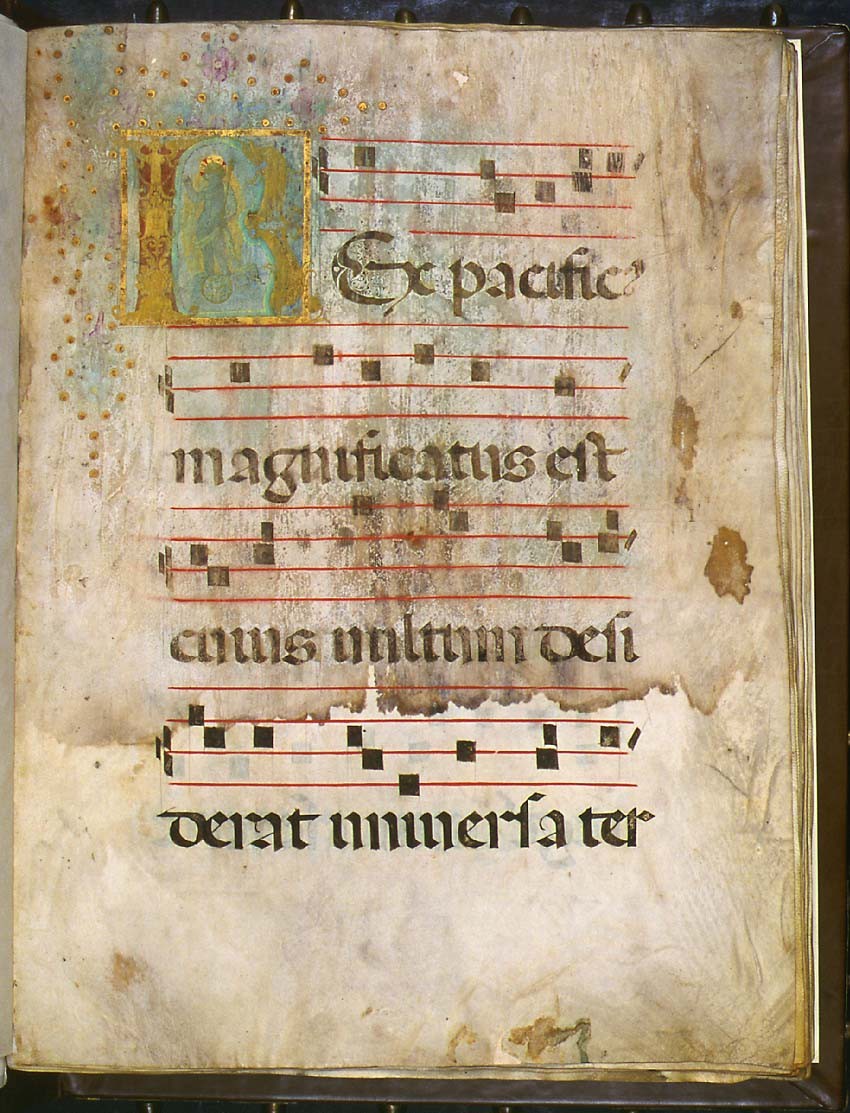 REx pacificꝰ
magnificatus est
cuius vultum desi
derat universa ter